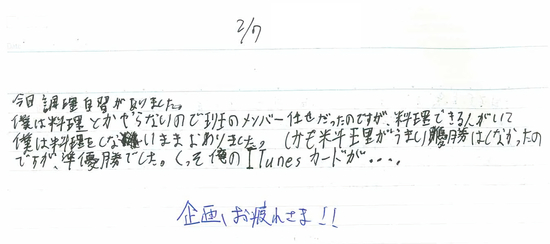 2/7
今日調理自習がありました。
僕は料理とかやらないので班のメンバー任せだったのですが、料理できる人がいて
僕は料理をしないままおわりました。しかも料理がうまい優勝はしなかったの
ですが、準優勝でした。くっそ俺のITunesカードが...
企画、お疲れさま!!